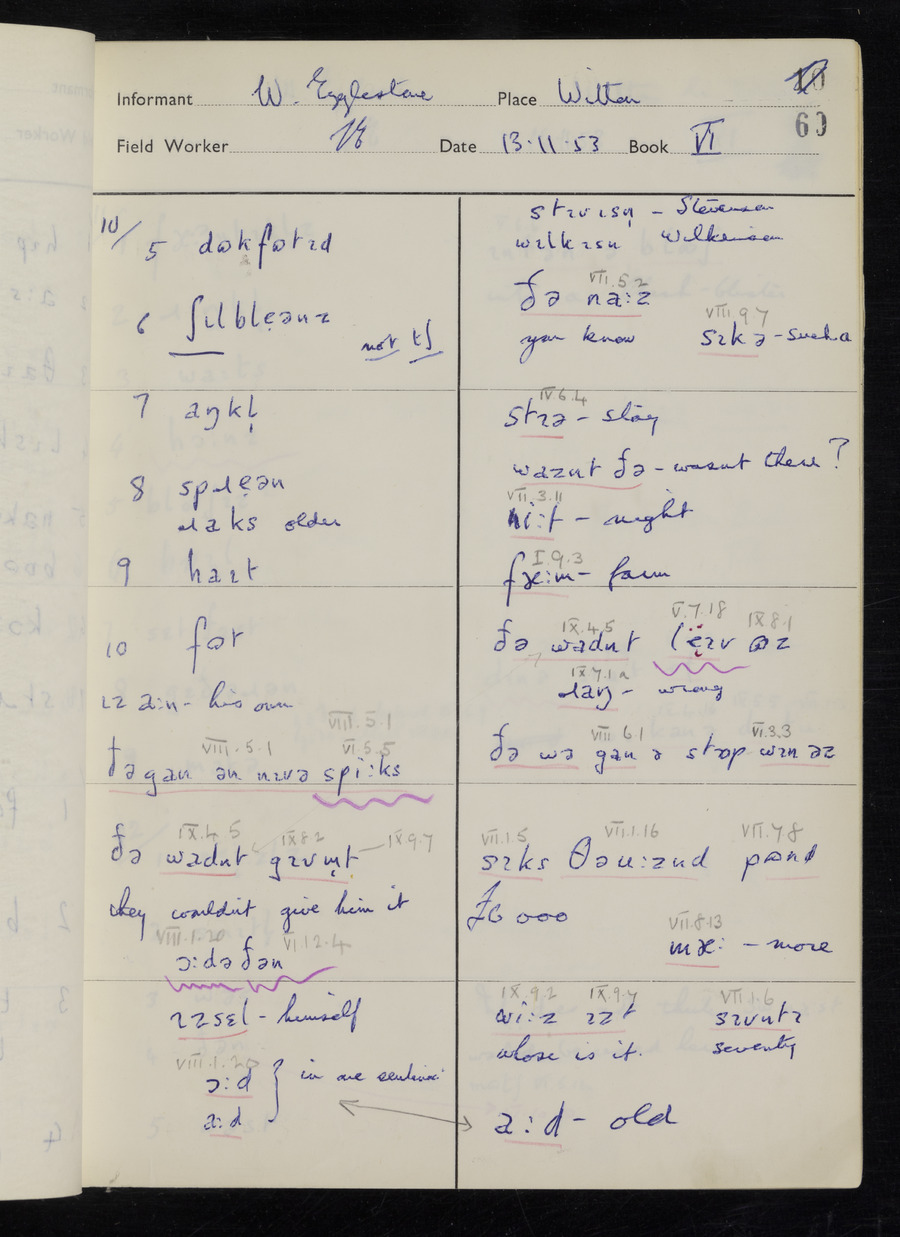 Informant W. Egglestone Place Witton
60
Field Worker Date 13·11·53 Book VI
10/
5 dʊkfʊtɪd
6 ʃɪlblẹənz
not tʃ
7 aŋkl̩
8 spɹẹən
ɹaks older
9 haɪt
10 fʊt
ɪz a:n - his own
VIII.5.1
VIII.5.1 VI.5.5
ðə gan ən nɪvə spi:ks
IX.4.5 IX.8.2 IX.9.7
ðə wadnt gɪvm̩t
they wouldn't give him it
VIII.1.20 VI.12.4
ɔ:dəðən
ɪzsɛl - himself
VIII.1.20
ɔ:d
in one sentence
a:d
stɪvɪsn̩ - Stevenson
wɪlkɪsn̩ Wilkinson
VII.5.2
ðə na:z
you know
VIII.9.7
sɪkə - such a
IV.6.4
stɪə - stay
waznt ðə - wasnt there?
VII.3.11
ni:t - night
I.9.3
fæ:m - farm
IX.4.5 V.7.18 IX.8.1
IX.7.1a
ɹaŋ - wrong
VIII.6.1 VI.3.3
ðə wə gan ə stop wɪn əz
VII.1.5 VII.1.16 VII.7.8
sɪks θəu:znd pʊnd
£6000
VII.8.13
mæ: - more
IX.9.2 IX.9.4 VII.1.6
wi:z ɪzt sɪvntɪ
whose is it. seventy
a:d - old